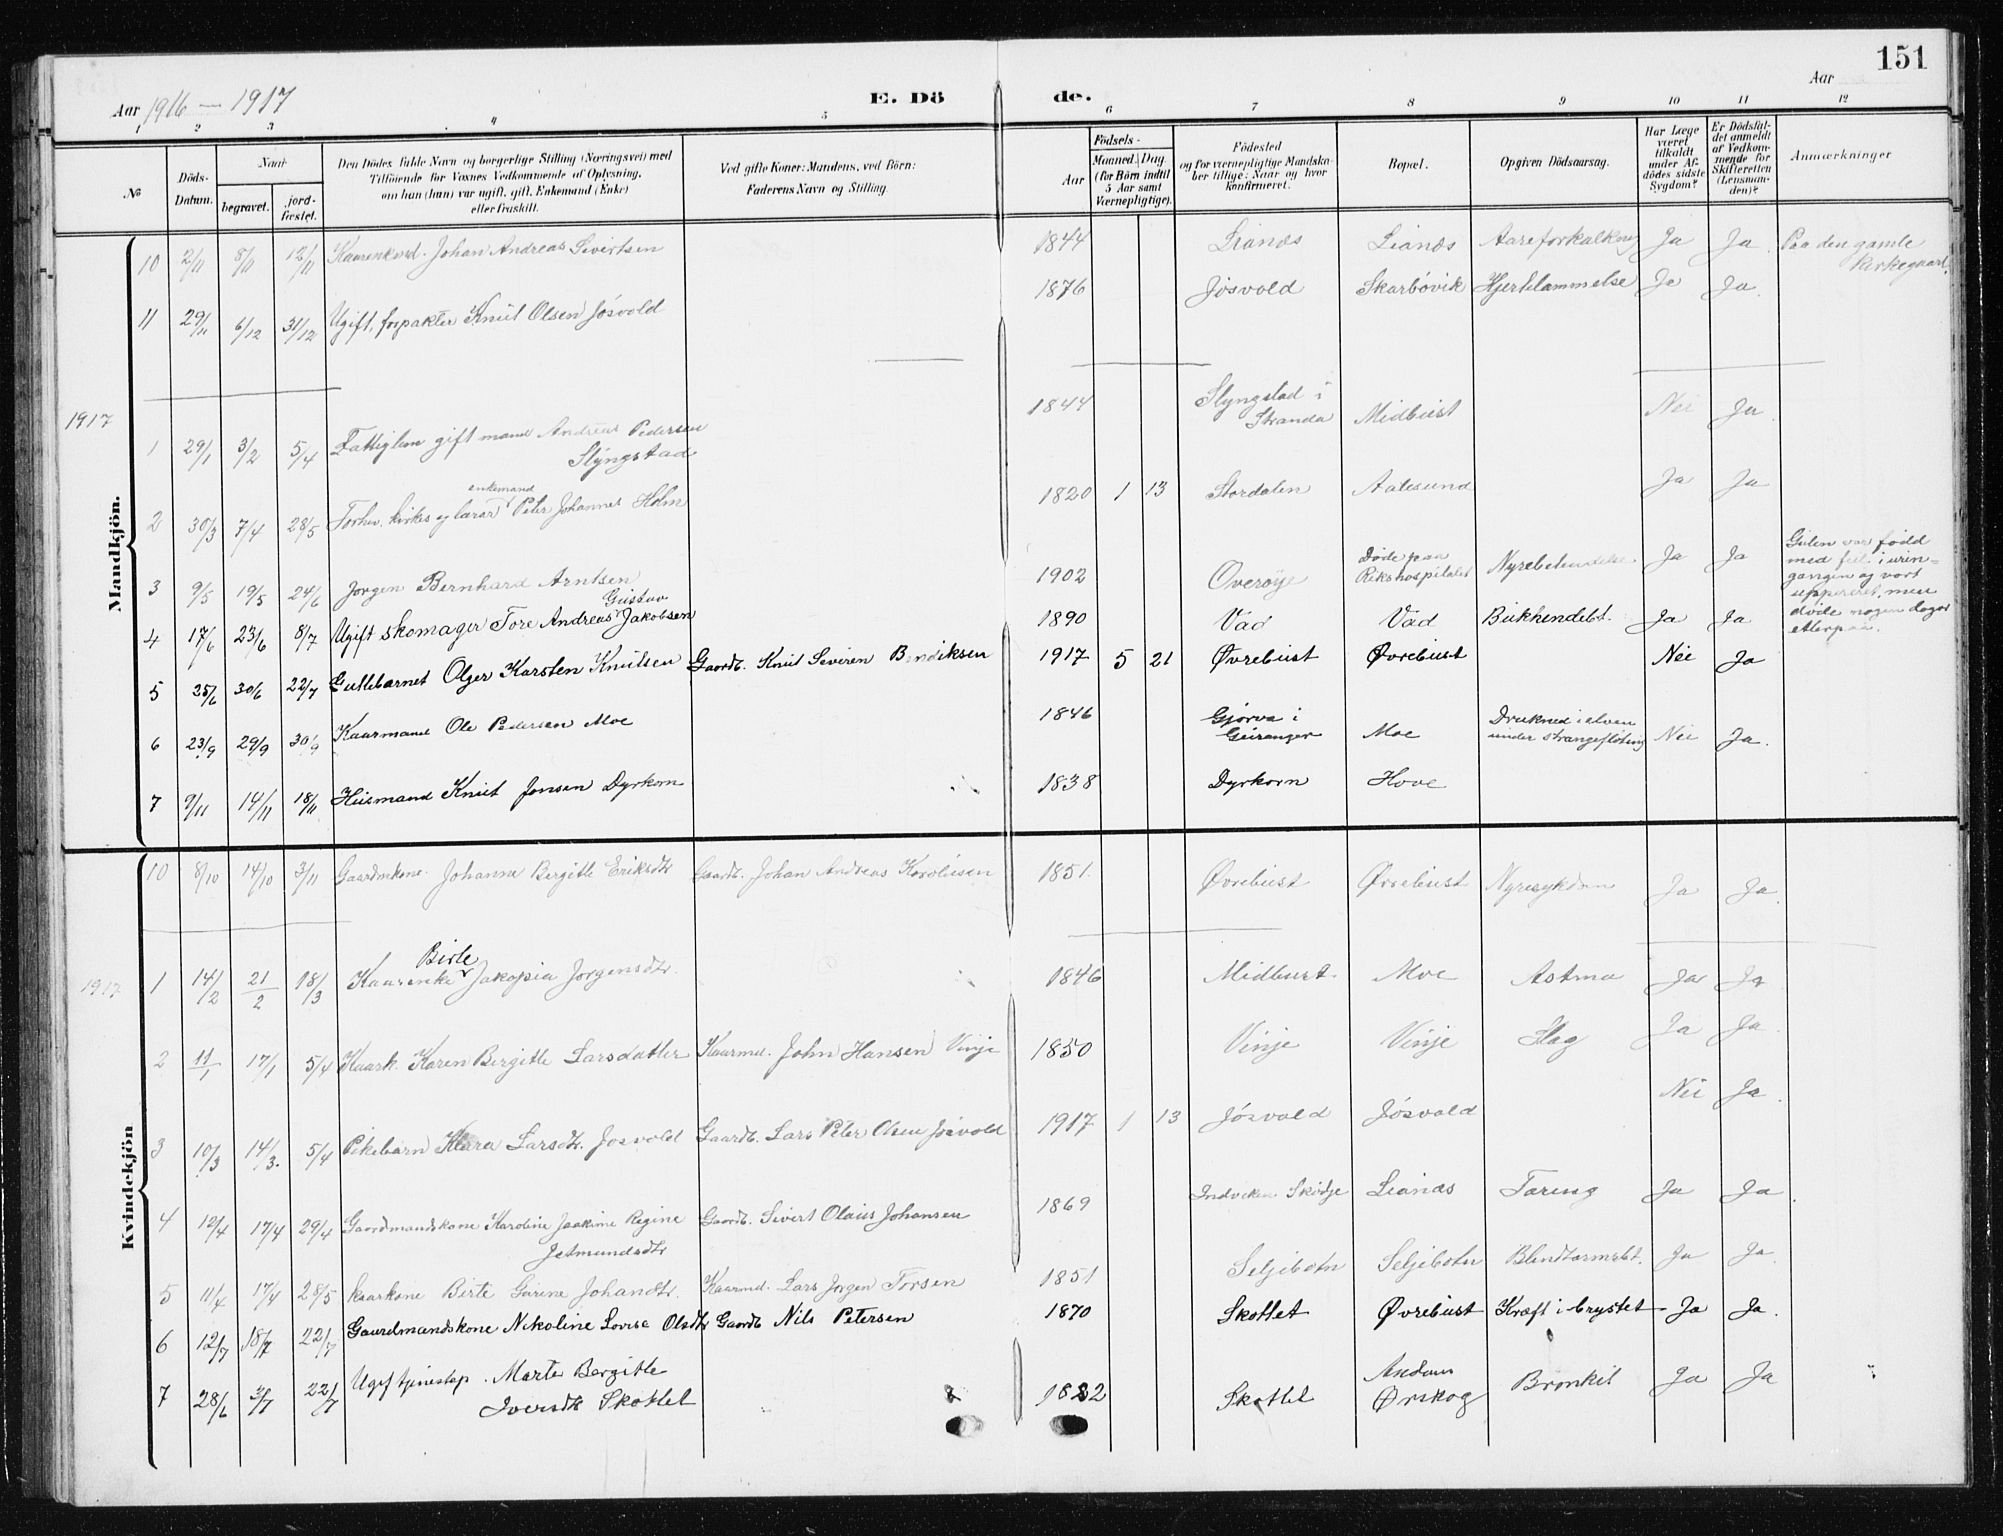 151
Aar 1916 — 1917
E. Dö de.
Aar
1 2 3 4 5 6 7 8 9 10 11 12
№
Döds-Datum.
Naar
begravet.
jord-fæstet.
Den Dödes fulde Navn og borgerlige Stilling (Næringsvei) med
Tilföiende for Voxnes Vedkommende af Oplysning,
om han (hun) var ugift, gift, Enkemand (Enke)
eller fraskilt.
Ved gifte Koner: Mandens, ved Börn:
Faderens Navn og Stilling.
Födsels-
Aar
Maaned. Dag.
(for Börn indtil
5 Aar samt
Værnepligtige).
Födested
og for værnepligtige Mandska-
ber tillige: Naar og hvor
konfirmeret.
Bopæl.
Opgiven Dödsaarsag.
Har Læge
været
tilkaldt
under Af-
dödes sidste
Sygdom?
Er Dödsfal-
det anmeldt
af Vedkom-
mende for
Skifteretten
(Lensman-
den)?
Anmærkninger
Mandkjön.
10 2/11 8/11 12/11 Kaarenkmd. Johan Andreas Sivertsen 1844 Lianes Lianes Aareforkalkning Ja Ja Paa den gamle kirkegaard.
11 29/11 6/12 31/12 Ugift, forpakter Knut Olsen Jösvold 1876 Jösvold Skarbövik Hjertelammelse Ja Ja.
1917
1 29/1 3/2 5/4 Fattiglem gift mand Andreas Pedersen Slyngstad 1844 Slyngstad i Stranda Midbust Nei Ja.
2 30/3 7/4 28/5 Forhv. kirkesylærar enkemand Peter Johannes Holm 1820 1 13 Stordalen Aalesund Ja Ja
3 9/5 19/5 24/6 Jorgen Bernhard Arntsen 1902 Overöye Döde paa Rikshospitalet Nyrebetendelse Ja Ja Guten var född med feil i urin-gangen og vart uppereret, men döde nogen dagar etterpaa.
4 17/6 23/6 8/7 Ugift skomager Tore Andreas Gustav Jakobsen 1890 Vad Vad Bukhendebt. Ja Ja
5 25/6 30/6 22/7 Guttebarnet Olger Karsten Knutsen Gaardb. Knut Severen Bendiksen 1917 5 21 Øvrebust Øvrebust Nei Ja
6 23/9 29/9 30/9 Kaarmand Ole Pedersen Moe 1846 Gjörva i Geiranger Moe Drukned i elven under strangeflöting Nei Ja.
7 9/11 14/11 18/11 Husmand Knut Jonsen Dyrkorn 1838 Dyrkorn Hove
Kvindekjön
10 8/10 14/10 3/11 Gaardmkone. Johanne Bergitte Eriksdtr Gaardb. Johan Andreas Karolusen 1851. Øvrebust Øvrebust Nyresykdom Ja Ja.
1917
1 14/2 21/2 18/3 Kaarenke Birte Jakopia Jorgensdtr. 1846 Midbust. Moe Astma Ja Ja
2 11/1 17/1 5/4 Kaark. Karen Bergitte Larsdatter Kaarmd. John Hansen Vinje 1850 Vinje Vinje Slag Ja Ja.
3 10/3 14/3. 5/4 Pikebarn Klara Larsdtr. Jösvold Gaardb. Lars Peter Olsen Jösvold 1917 1 13 Jösvold Jösvold Nei Ja.
4 12/4 17/4 29/4 Gaardmandskone Karoline Joakime Regine Jetmundsdtr Gaardb. Sivert Olaus Johansen 1869 Indviken Skodje Lianes Tæring Ja Ja.
5 11/4 17/4 28/5 kaarkone Birte Gurine Johandtr. Kaarmd. Lars Jorgen Torsen 1851 Seljebotn Seljebotn Blindtarmsbt. Ja Ja.
6 12/7 18/7 22/7 Gaardmandskone Nikoline Lovise Olsdtr Gaardb Nils Petersen 1870 Skottet Øvrebust Kræft i brystet Ja Ja.
7 28/6 3/7 22/7 Ugift tjinestep. Marte Bergitte Iversdtr Skottet 1832 Skottet Andam Ørskog Bronkit Ja Ja